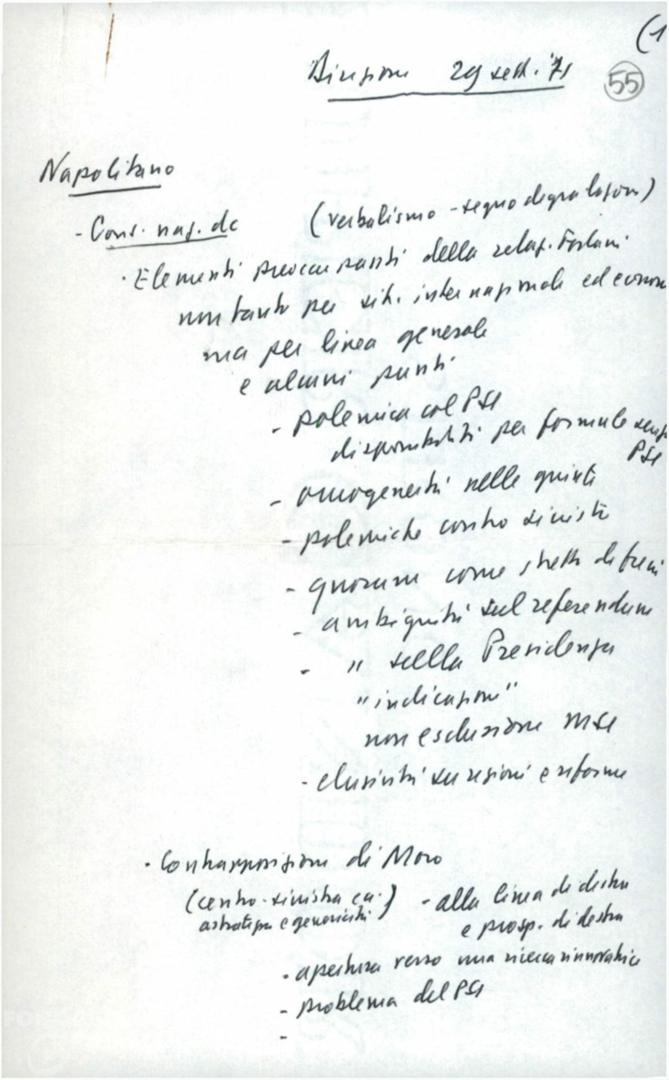 (1
Direzione 29 sett. '71
55
Napolitano
- Cons. naz. dc (verbalismo - segno degradazione)
· Elementi preoccupanti della relaz. Forlani
non tanto per sit. internazionale ed econom
ma per linea generale
e alcuni punti
- polemica col PSI
disponibilità per formule senza
PSI
- omogeneità nelle giunte
- polemiche contro sinistre
- quorum come
- ambiguità sul referendum
- " sulla Presidenza
"indicazioni"
non esclusione MSI
- elusività su regioni e riforme
· Contrapposizione di Moro
(centro-sinistra
astrattezza e genericità) - alla linea di destra
e prosp. di destra
- apertura verso una ricerca rinnovatrice
- problema del PSI
-